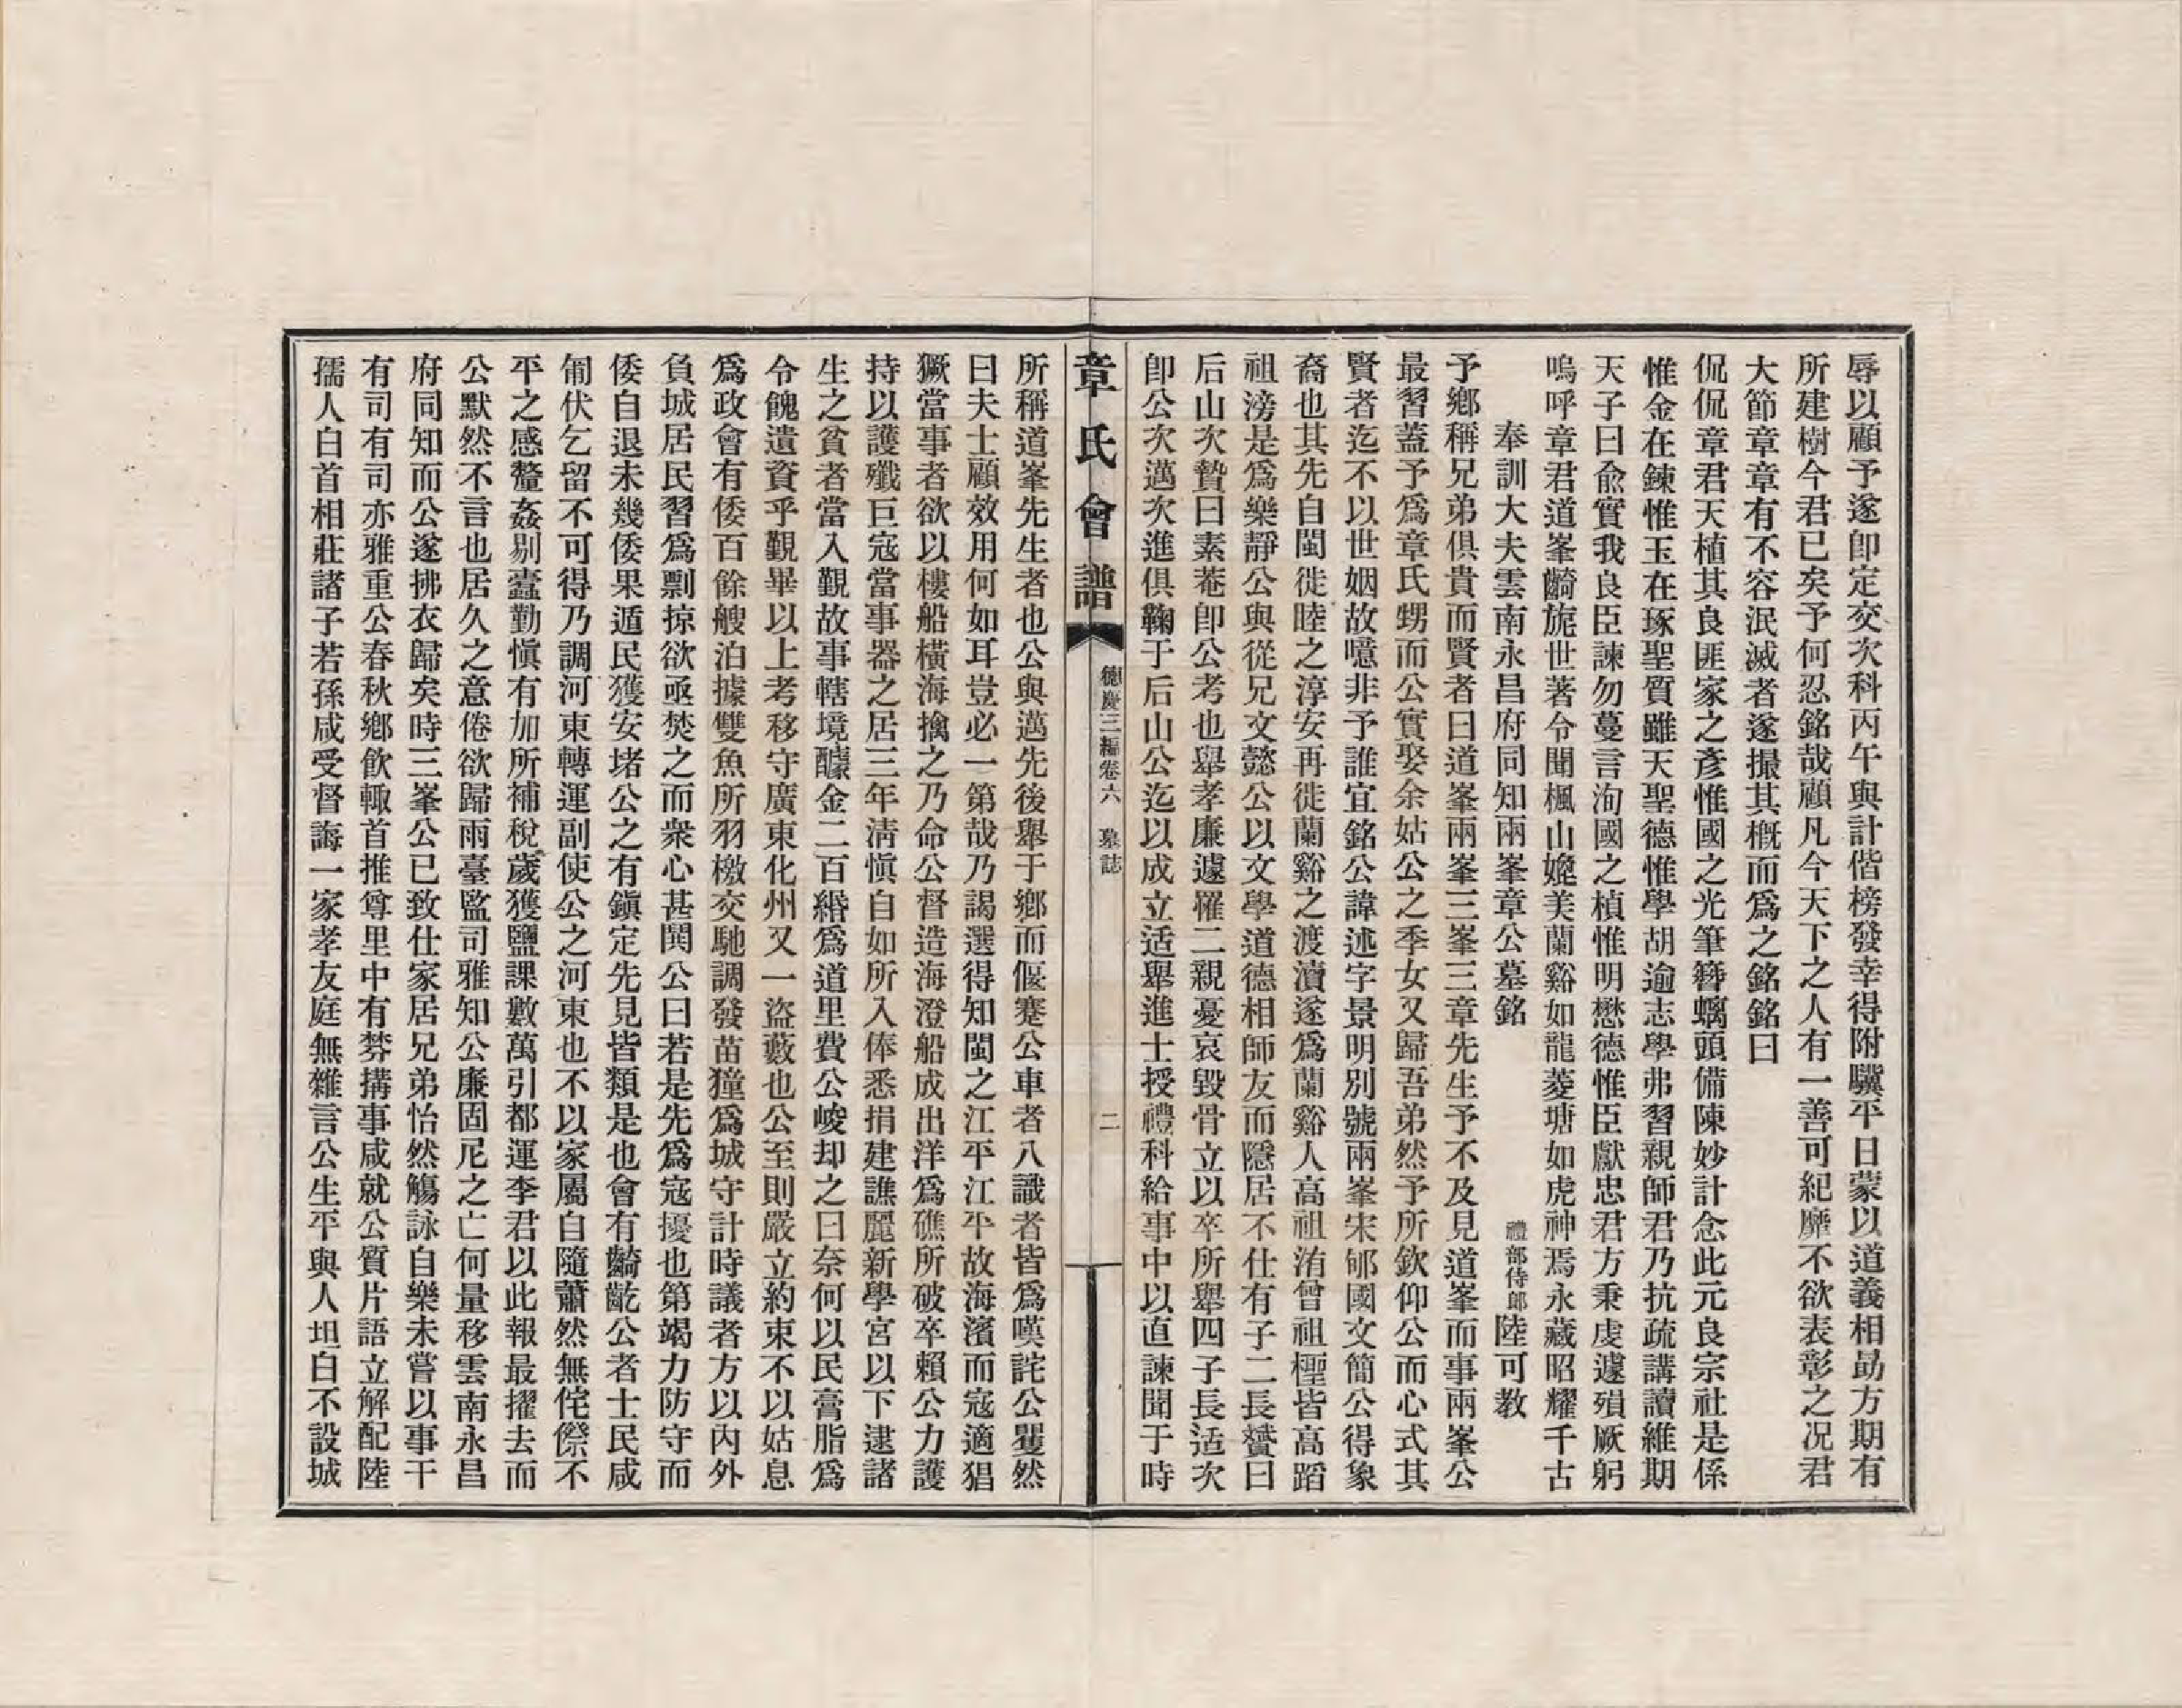 辱以顧予遂卽定交次科丙午與計偕榜發幸得附驥平日蒙以道義相勗方期有
所建樹今君已矣予何忍銘哉顧凡今天下之人有一善可紀靡不欲表彰之况君
大節章章有不容泯滅者遂撮其槪而爲之銘銘曰
侃侃章君天植其良匪家之彥惟國之光筆簪螭頭備陳妙計念此元良宗社是係
惟金在鍊惟玉在琢聖質雖天聖德惟學胡逾志學弗習親師君乃抗疏講讀維期
天子曰兪實我良臣諫勿蔓言洵國之楨惟明懋德惟臣獻忠君方秉虔遽殞厥躬
嗚呼章君道峯齮旎世著令聞楓山嬎美蘭谿如龍菱塘如虎神焉永藏昭耀千古
奉訓大夫雲南永昌府同知兩峯章公墓銘 禮部侍郎陸可教
予鄕稱兄弟俱貴而賢者曰道峯兩峯三峯三章先生予不及見道峯而事兩峯公
最習蓋予爲章氏甥而公實娶余姑公之季女又歸吾弟然予所欽仰公而心式其
賢者迄不以世姻故噫非予誰宜銘公諱述字景明別號兩峯宋郇國文簡公得象
裔也其先自閩徙睦之淳安再徙蘭谿之渡瀆遂爲蘭谿人高祖洧曾祖檉皆高蹈
祖滂是爲樂靜公與從兄文懿公以文學道德相師友而隱居不仕有子二長贇曰
后山次贄曰素菴卽公考也舉孝廉遽罹二親憂哀毀骨立以卒所舉四子長适次
卽公次邁次進俱鞠于后山公迄以成立适舉進士授禮科給事中以直諫聞于時
章氏會譜 德慶三編卷六 墓誌 二
所稱道峯先生者也公與邁先後舉于鄕而偃蹇公車者八識者皆爲嘆詫公矍然
曰夫士顧效用何如耳豈必一第哉乃謁選得知閩之江平江平故海濱而寇適猖
獗當事者欲以樓船橫海擒之乃命公督造海澄船成出洋爲礁所破卒賴公力護
持以護殲巨寇當事器之居三年淸愼自如所入俸悉捐建譙麗新學宮以下逮諸
生之貧者當入覲故事轄境醵金二百緡爲道里費公峻却之曰奈何以民膏脂爲
令餽遺資乎覲畢以上考移守廣東化州又一盜藪也公至則嚴立約束不以姑息
爲政會有倭百餘艘泊據雙魚所羽檄交馳調發苗獞爲城守計時議者方以內外
負城居民習爲剽掠欲亟焚之而衆心甚鬨公曰若是先爲寇擾也第竭力防守而
倭自退未幾倭果遁民獲安堵公之有鎭定先見皆類是也會有齮齕公者士民咸
匍伏乞留不可得乃調河東轉運副使公之河東也不以家屬自隨蕭然無侘傺不
平之感釐姦剔蠹勤愼有加所補稅歲獲鹽課數萬引都運李君以此報最擢去而
公默然不言也居久之意倦欲歸兩臺監司雅知公廉固尼之亡何量移雲南永昌
府同知而公遂拂衣歸矣時三峯公已致仕家居兄弟怡然觴詠自樂未嘗以事干
有司有司亦雅重公春秋鄕飲輙首推尊里中有棼搆事咸就公質片語立解配陸
孺人白首相莊諸子若孫咸受督誨一家孝友庭無雜言公生平與人坦白不設城